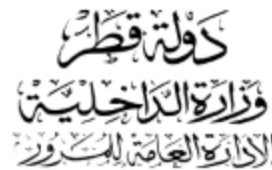 دَوْلَة قَطَر
وَزَارَة الدَّاخِلِيَّة
الإدارة العامة للمرور